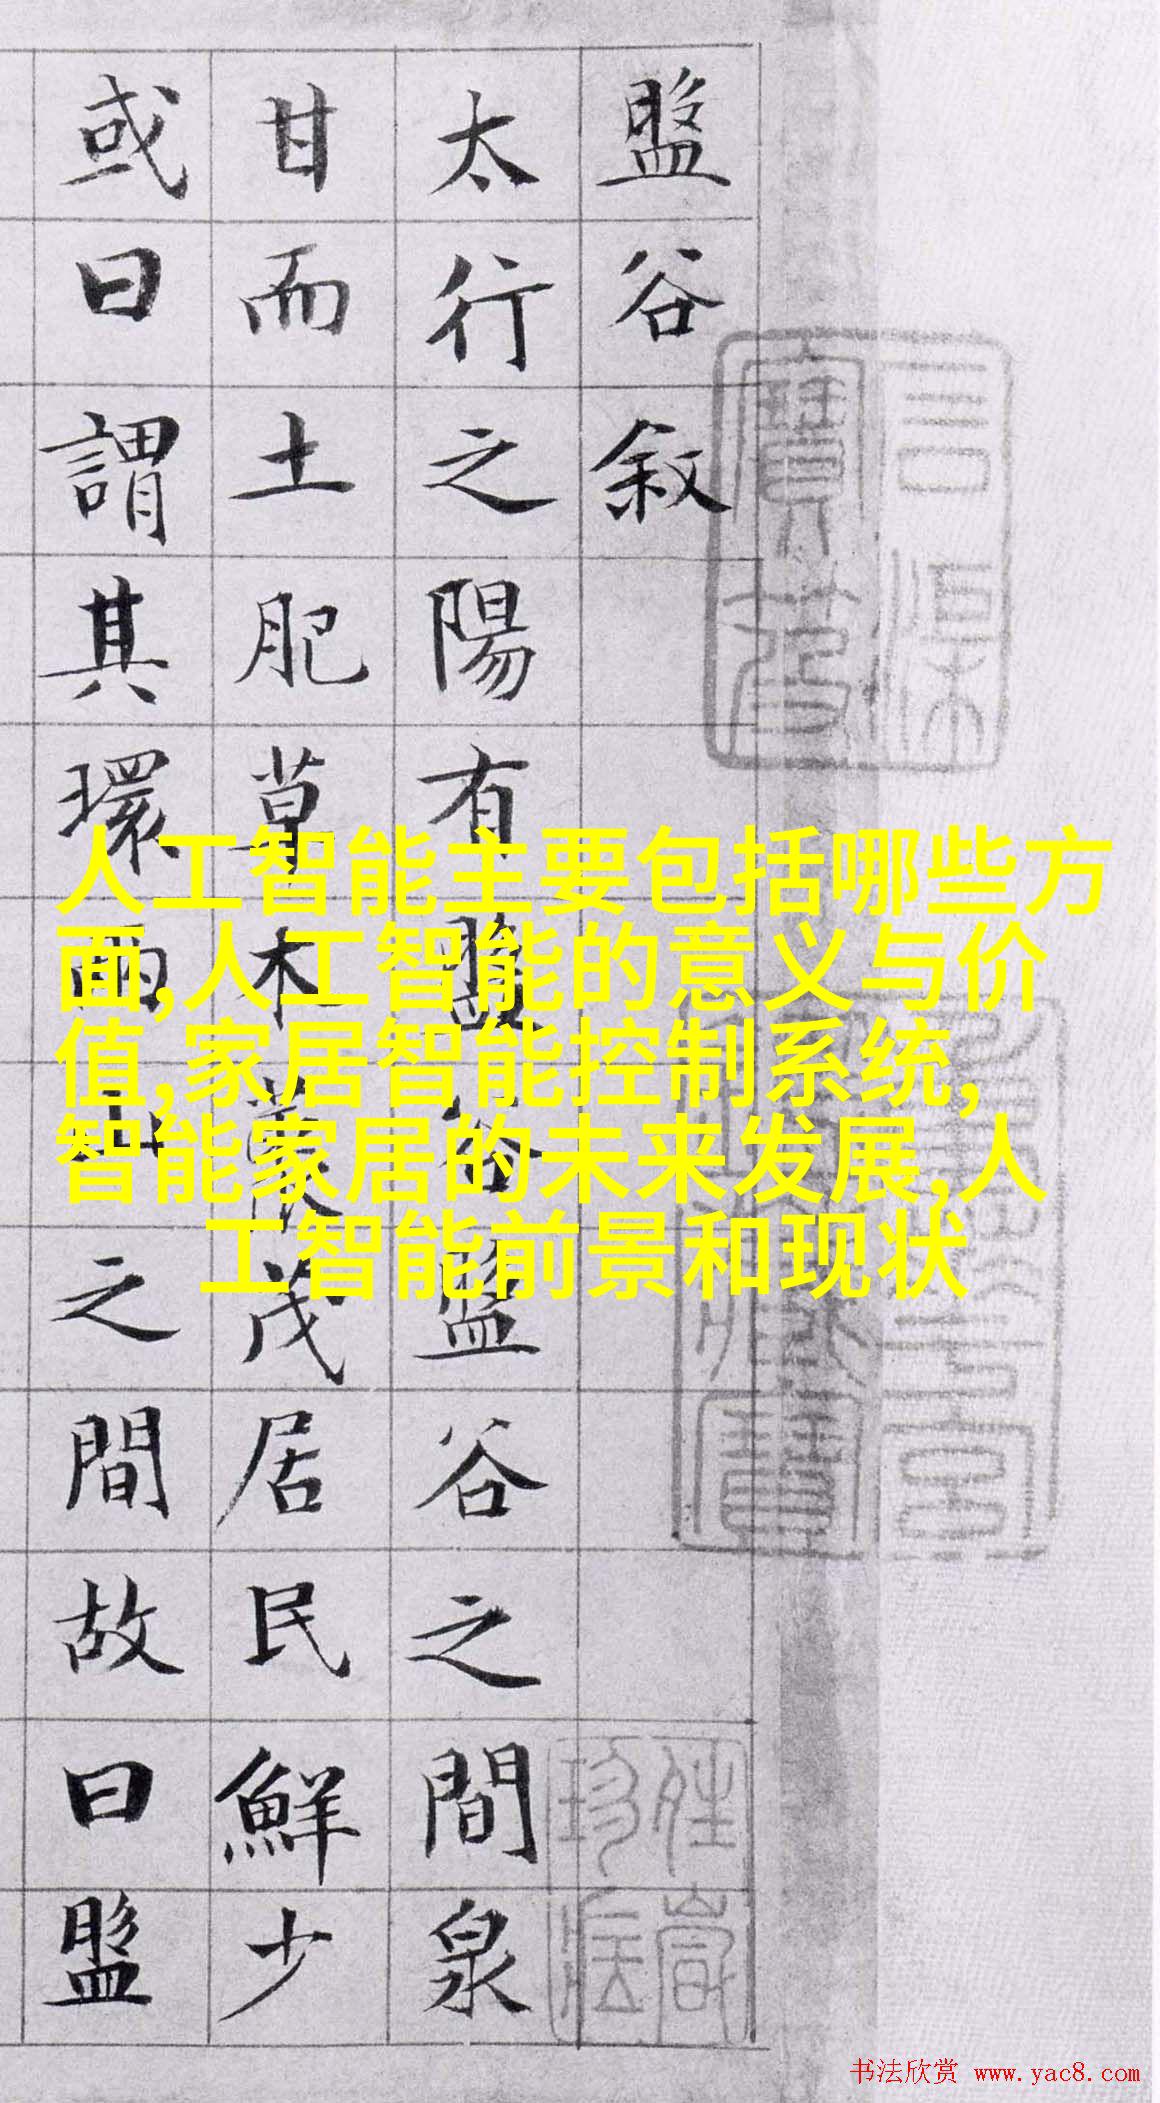 盤谷敘
太行之陽有盤谷盤谷之間泉
甘而土肥草木藂茂居民鮮少
或曰謂其環兩山之間故曰盤
人工智能主要包括哪些方
面,人工智能的意义与价
值,家居智能控制系统,
智能家居的未来发展,人
工智能前景和现状
书法欣赏 www.yac8.com